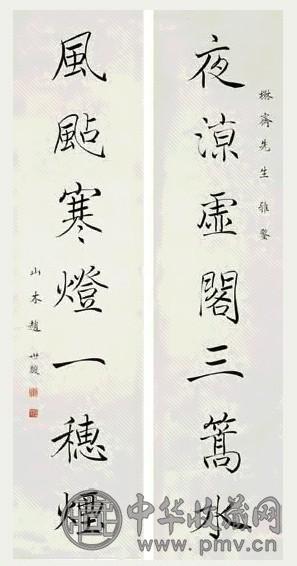 楙齋先生雅鑒
夜涼虛閣三篙水
風颭寒燈一穗煙
山木趙世駿
中华收藏网
www.pmv.cn